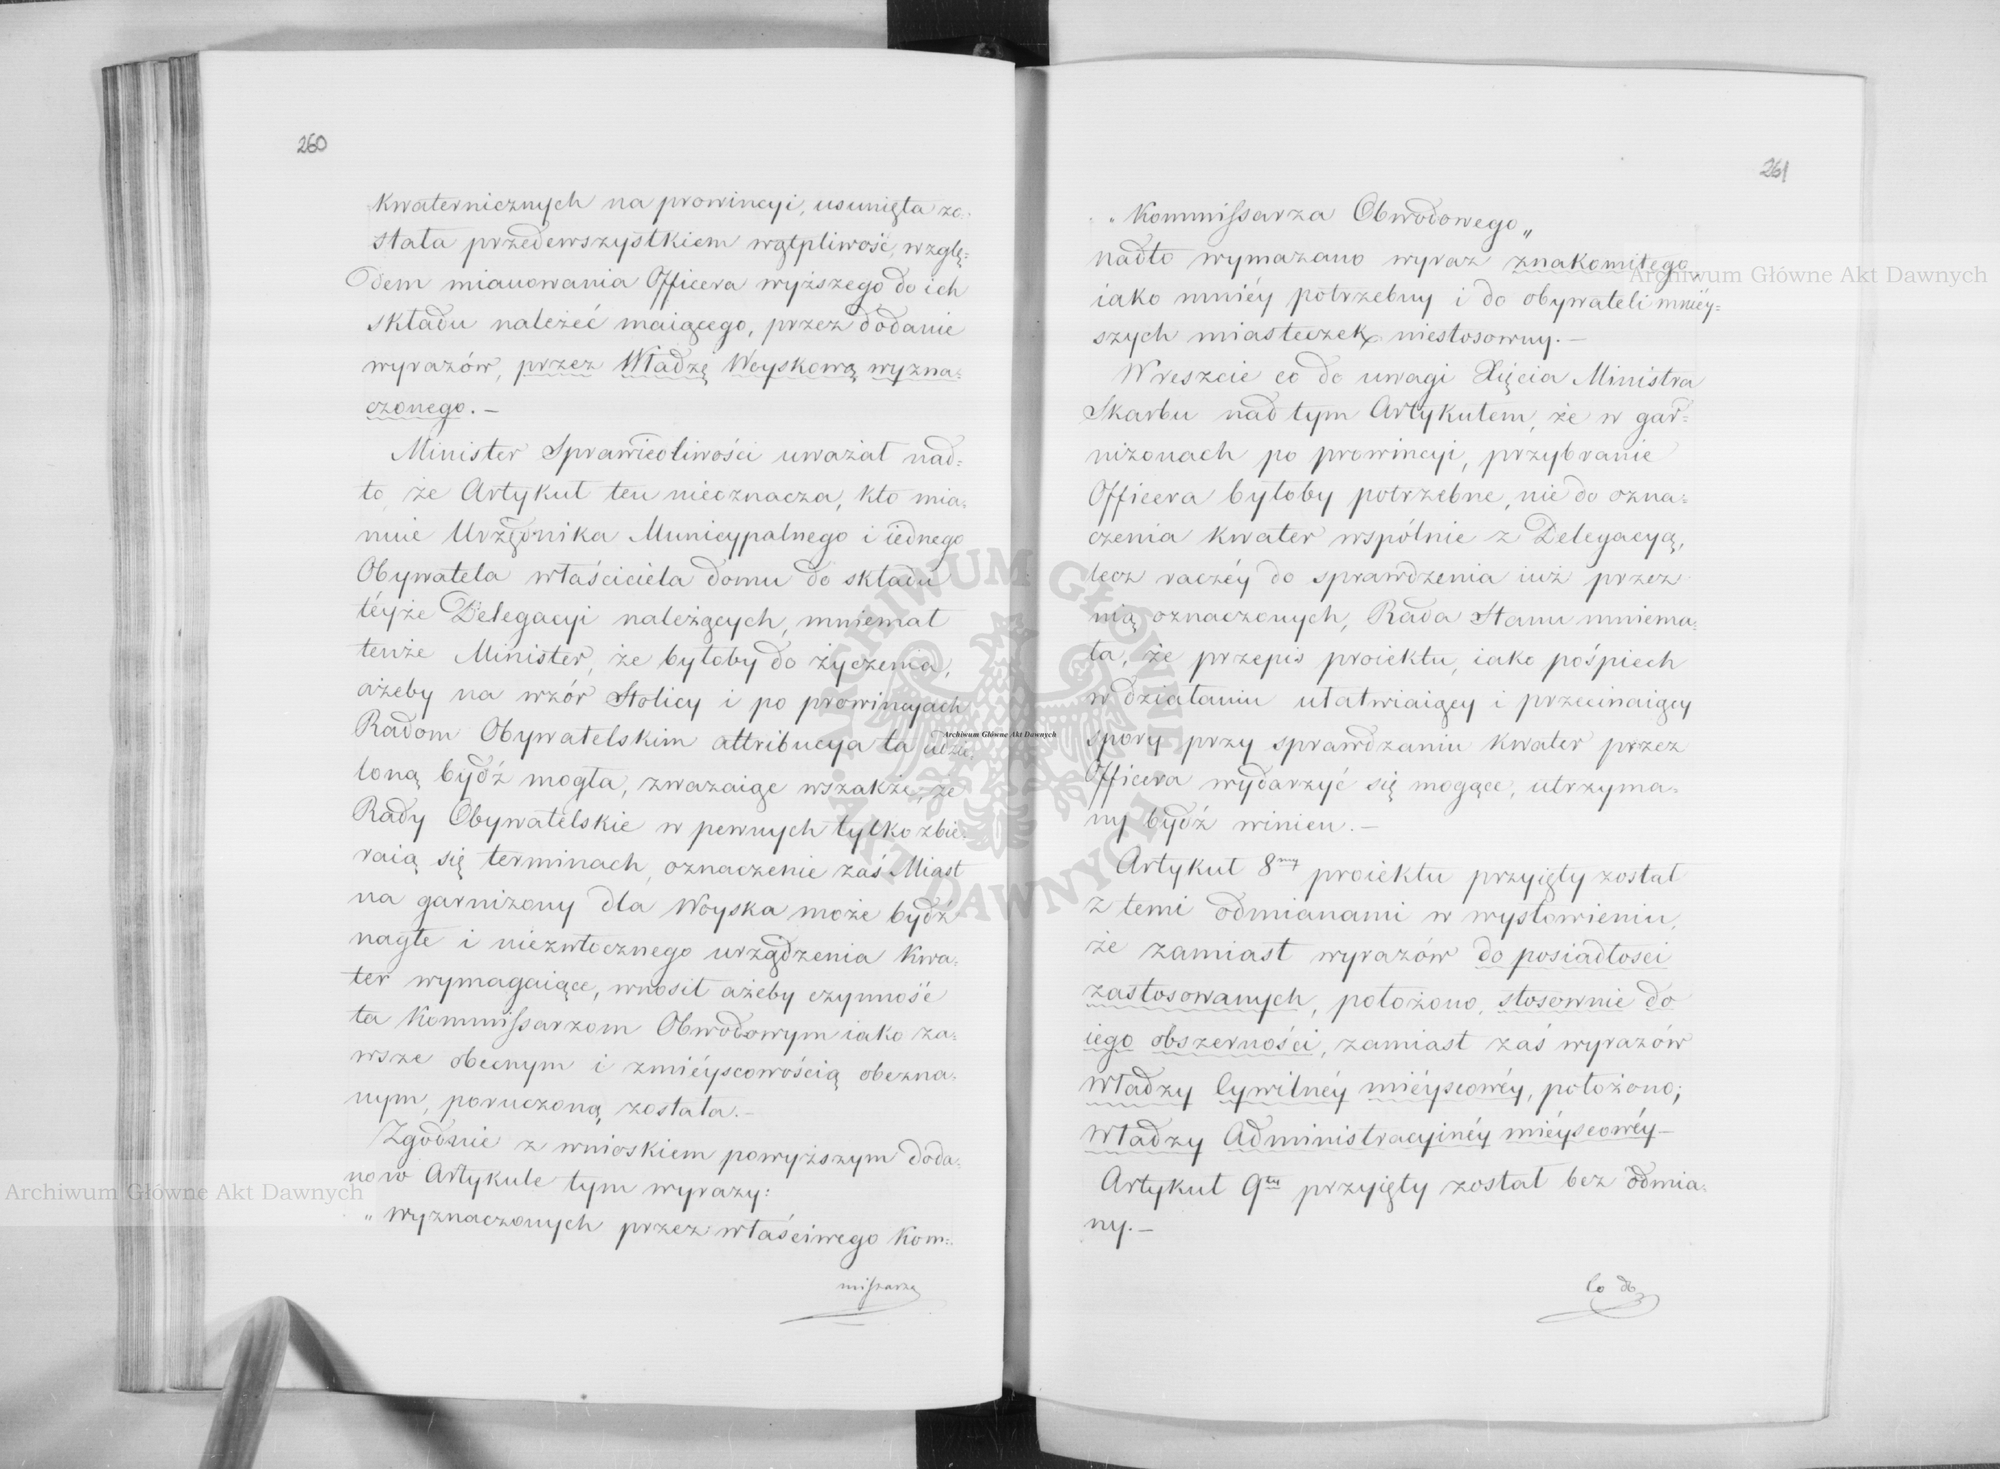 260
kwaternicznych na prowincyi, usunięta zo-
stała przedewszystkiem wątpliwość, wzglę-
dem mianowania Officera wyższego do ich
składu należeć maiącego, przez dodanie
wyrazów, przez Władzę Woyskową wyzna-
czonego. —
Minister Sprawiedliwości uważał nad-
to, że Artykuł ten nieoznacza, kto mia-
nuie Urzędnika Municypalnego i iednego
Obywatela właściciela domu do składu
téyże Delegacyi należących, mniemał
tenże Minister, że byłoby do życzenia,
ażeby na wzór Stolicy i po prowincyach
Radom Obywatelskim attribucya ta udzie-
loną bydź mogła, zważaiąc wszakże, że
Rady Obywatelskie w pewnych tylko zbie-
raią się terminach, oznaczenie zaś Miast
na garnizony dla Woyska może bydź
nagłe i niezwłocznego urządzenia kwa-
ter wymagaiące, wnosił ażeby czynność
ta Kommissarzom Obwodowym iako za-
wsze obecnym i zmiéyscowością obezna-
nym, poruczoną została. —
Zgodnie z wnioskiem powyższym doda-
no w Artykule tym wyrazy:
„wyznaczonych przez właściwego Kom-
missarza
261
„Kommissarza Obwodowego„
nadto wymazano wyraz znakomitego,
iako mniéy potrzebny i do obywateli mniéy-
szych miasteczek niestosowny. —
Wreszcie co do uwagi Xięcia Ministra
Skarbu nad tym Artykułem, że w gar-
nizonach po prowincyi, przybranie
Officera byłoby potrzebne, nie do ozna-
czenia kwater wspólnie z Delegacyą,
lecz raczéy do sprawdzenia iuż przez
nią oznaczonych, Rada Stanu mniema-
ła, że przepis proiektu, iako pośpiech
w działaniu ułatwiaiący i przecinaiący
spory przy sprawdzaniu kwater przez
Officera wydarzyć się mogące, utrzyma-
ny bydź winien. —
Artykuł 8my proiektu przyięty został
z temi odmianami w wysłowieniu,
że zamiast wyrazów do posiadłosci
zastosowanych, położono, stosownie do
iego obszerności, zamiast zaś wyrazów
Władzy Cywilnéy miéyscowéy, położono;
Władzy Administracyinéy miéyscowéy —
Artykuł 9ty przyięty został bez odmia-
ny. —
Co do
Archiwum Główne Akt Dawnych
Archiwum Główne Akt Dawnych
Archiwum Główne Akt Dawnych
ARCHIWUM GŁÓWNE AKT DAWNYCH